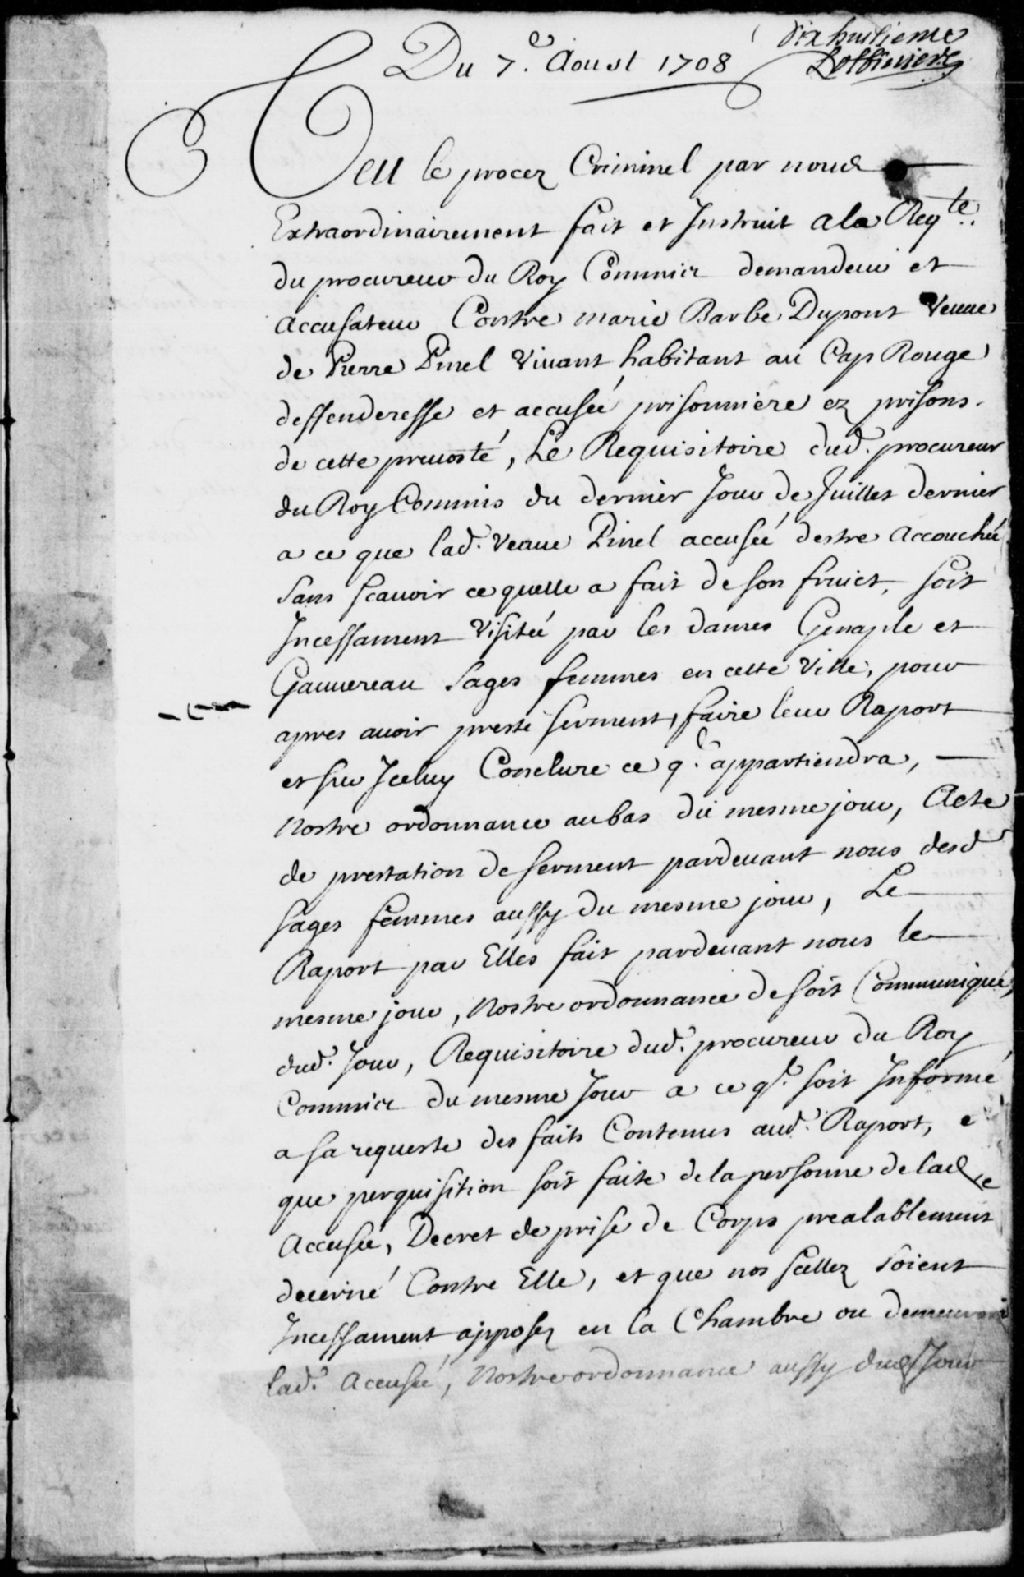 dix huitieme
Lotbiniere
Du 7.e Aoust 1708
Veu le procez Criminel par nous
Extraordinairement fait et Instruit a la Reqte.
du procureur du Roy Commis demandeur et
accusateur Contre marie Barbe Dupont Veuve
de Pierre Pinel vivant habitant au Cap Rouge
deffenderesse et accusée prisonniere ez prisons.
de cette prevosté, Le Requisitoire dud. procureur
du Roy Commis du dernier Jour de Juillet dernier
a ce que lad. veuve Pinel accusée destre accouchée
sans scavoir ce quelle a fait de son fruict, soit
Incessament visitée par les dames Genaple et
Gauvereau sages femmes en cette ville, pour
apres avoir presté serment, faire leur Raport
et sur Iceluy Conclure ce ql. appartiendra,
Nostre ordonnance au bas du mesme jour, Acte
de prestation de serment pardevant nous desd
sages femmes aussy du mesme jour, Le
Raport par Elles fait pardevant nous le
mesme jour, Nostre ordonnance de soit Communiqué,
dud. Jour, Requisitoire dud. procureur du Roy
Commis du mesme Jour a ce ql. soit Informé
a sa requeste des faits Contenus aud. Raport, e
que perquisition soit faite de la personne de lad.e
Accusée, Decret de prise de Corps prealablement
decerné Contre Elle, et que nos scellez soient
Incessament apposez en la Chambre ou demeuroi
lad. Accusée, Nostre ordonnance aussy dud Jour